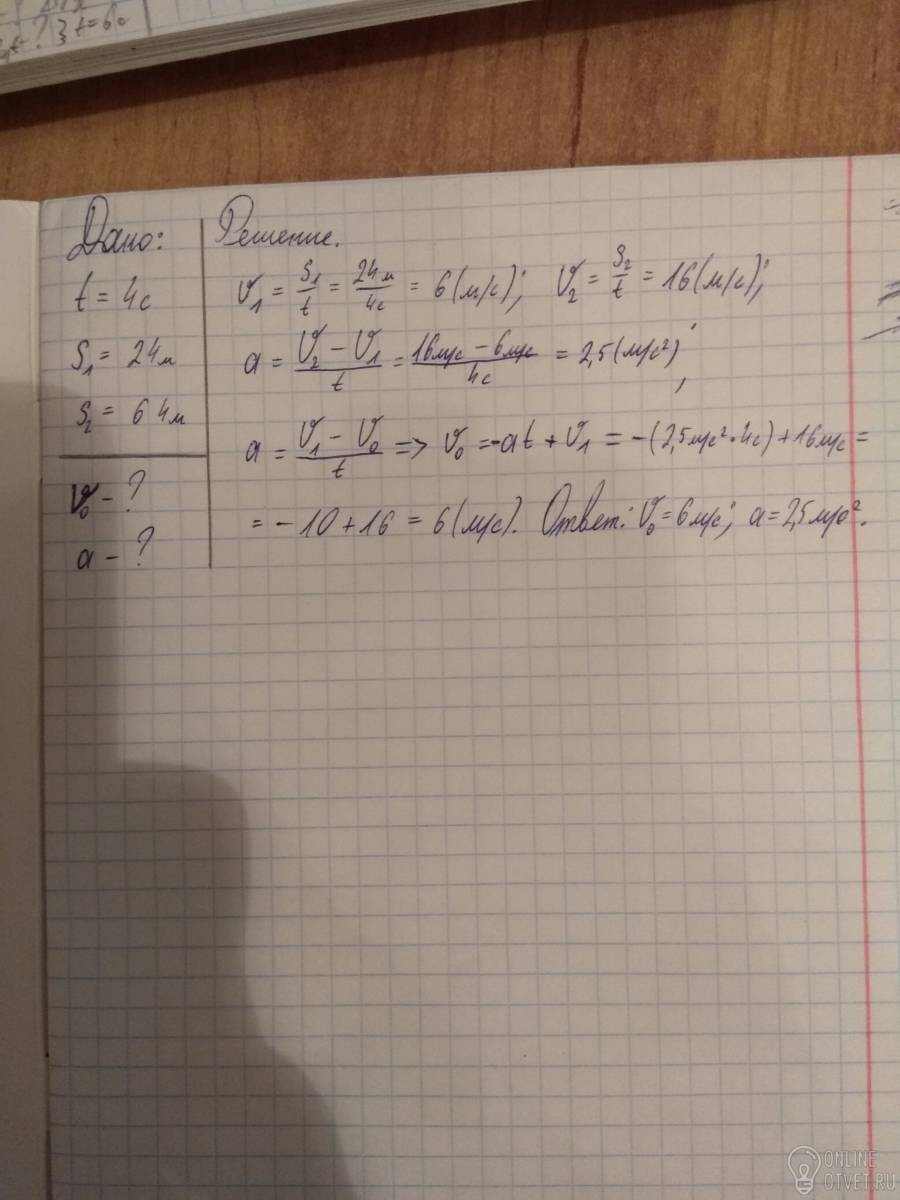 t = 6c
Дано:
t = 4с
S₁ = 24м
S₂ = 64м
V₀ - ?
a - ?
Решение.
V₁ = S₁/t = 24м/4с = 6(м/с); V₂ = S₂/t = 16(м/с);
a = (V₂ - V₁)/t = (16м/с - 6м/с)/4с = 2,5(м/с²);
a = (V₁ - V₀)/t => V₀ = -at + V₁ = -(2,5м/с² · 4с) + 16м/с =
= -10 + 16 = 6(м/с). Ответ: V₀ = 6м/с; a = 2,5м/с².
ONLINE
OTVET.RU